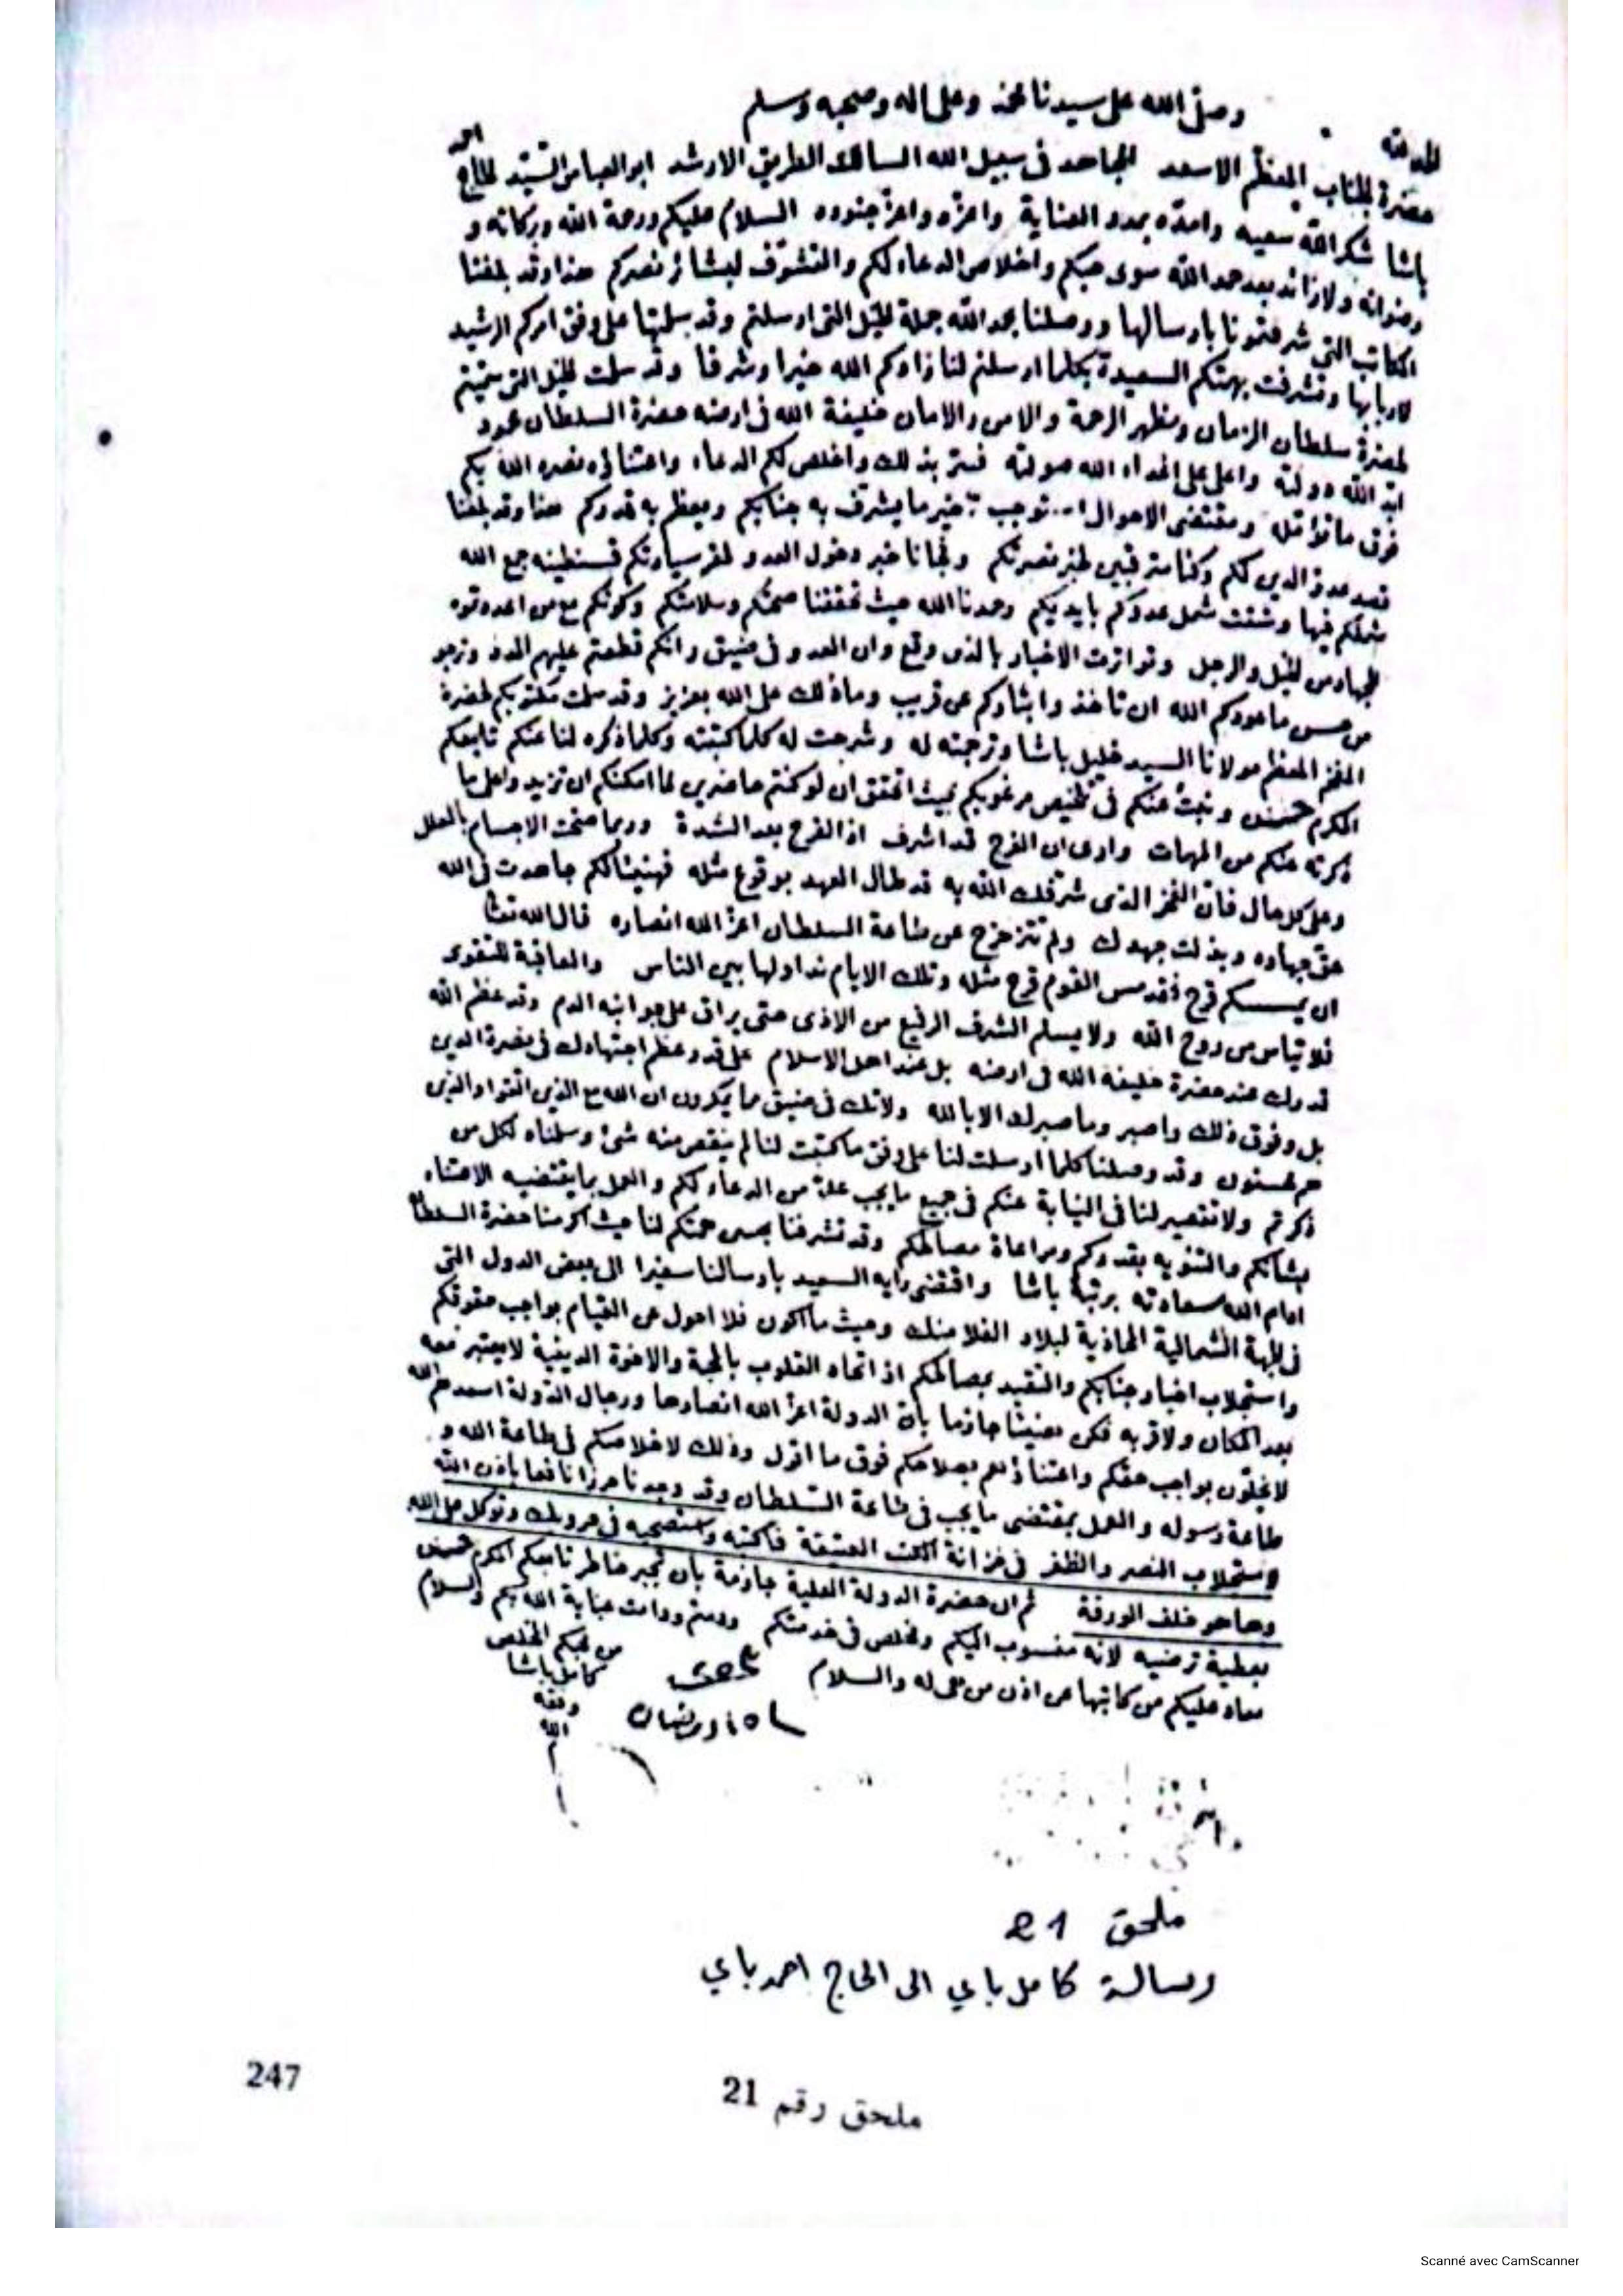 الحمد لله وصلى الله على سيدنا محمد وعلى اله وصحبه وسلم
حضرة الجناب المعظم الاسعد المجاهد فى سبيل الله السالك الطريق الارشد ابو العباس السيد الحاج احمد
باشا شكر الله سعيه وامده بمدد العناية واعزه واعز جنوده السلام عليكم ورحمة الله وبركاته و
رضوانه ولا زائد بعد حمد الله سوى حبكم واخلاص الدعاء لكم والتشوف لبشائر نصركم هذا وقد بلغنا
المكاتب التى شرفتمونا بارسالها ووصلنا بحمد الله جملة الخيل التى ارسلتم وقد سلمتها على وفق امركم الرشيد
لاربابها وتشرفت بهمتكم السعيدة بكلما ارسلتم لنا زادكم الله خيرا وشرفا وقد سلمت الخيل التى
لحضرة سلطان الزمان ومظهر الرحمة والامن والامان خليفة الله فى ارضه حضرة السلطان محمود
ابد الله دولته واعلى على اعداء الله صولته فسر بذلك واخلص لكم الدعاء واعتناؤه نصره الله بكم
فوق ما نقل ومقتضى الاحوال توجب خير ما يشرف به جنابكم ويعظم به قدركم هذا وقد بلغنا
قصد عدو الدين لكم وكنا مترقبين لخبر نصرتكم وفجانا خبر دخول العدو لمقر سيادتكم قسنطينه جمع الله
شملكم فيها وشتت شمل عدوكم بايديكم وحمدنا الله حيث تحققنا صحتكم وسلامتكم وكونكم مع من اعد قوه
للجهاد من الخيل والرجل وتواترت الاخبار بالذى وقع وان العدو فى ضيق وانكم قطعتم عليهم المدد ونرجو
من حسن ما عودكم الله ان تاخذوا بثاركم عن قريب وما ذلك على الله بعزيز وقد سلمت مكتوبكم لحضرة
المفخم المعظم مولانا السيد خليل باشا وترجمته له وشرحت له كلما كتبته وكلما ذكره لنا عنكم تابعكم
المكرم حسين ونبت عنكم فى تلخيص مرغوبكم بحيث اتحقق ان لو كنتم حاضرين لما امكنكم ان تزيدوا على ما
ذكرته عنكم من المهمات وارى ان الفرج قد اشرف اذ الفرج بعد الشدة وربما صحت الاجسام بالعلل
وعلى كل حال فان الفخر الذى شرفك الله به قد طال العهد بوقوع مثله فهنيئا لكم جاهدت فى الله
حق جهاده وبذلت جهدك ولم تتزحزح عن طاعة السلطان اعز الله انصاره قال الله تعالى
ان يمسسكم قرح فقد مس القوم قرح مثله وتلك الايام نداولها بين الناس والعاقبة للتقوى
فلا تياس من روح الله ولا يسلم الشرف الرفيع من الاذى حتى يراق على جوانبه الدم وقد عظم الله
قدرك عند حضرة خليفة الله فى ارضه بل عند اهل الاسلام على قدر عظم اجتهادك فى نصرة الدين
بل وفوق ذلك واصبر وما صبرك الا بالله ولا تك فى ضيق مما يمكرون ان الله مع الذين اتقوا والذين
هم محسنون وقد وصلنا كلما ارسلت لنا على وفق ما كتبت لنا لم ينقص منه شئ وسلمناه لكل من
ذكرتم ولا تقصير لنا فى النيابة عنكم فى جميع ما يجب علينا من الدعاء لكم والعمل بما يقتضيه الاعتناء
بشانكم والتنويه بقدركم ومراعاة مصالحكم وقد تشرفنا بحسن همتكم لنا حيث اكرمنا حضرة السلطان
ادام الله سعادته برتبة باشا واقتضى رايه السعيد بارسالنا سفيرا الى بعض الدول التى
فى الجهة الشمالية المحاذية لبلاد الفلامنك وحيث ما اكون فلا احول عن القيام بواجب حقوقكم
واستجلاب اخبار جنابكم والتقيد بمصالحكم اذ اتحاد القلوب بالمحبة والاخوة الدينية لا يعتبر معه
بعد المكان ولا قربه فكن جازما بان الدولة اعز الله انصارها ورجال الدولة اسعدهم الله
لا يخلون بواجب حقكم واعتناؤهم بصلاحكم فوق ما اقول وذلك لاخلاصكم فى طاعة الله و
طاعة رسوله والعمل بمقتضى ما يجب فى طاعة السلطان وقد وجدنا حرزا نافعا باذن الله
لاستجلاب النصر والظفر فى خزانة الكتب العتيقة فاكتبه واستصحبه فى حروبك وتوكل على الله
وها هو خلف الورقة ثم ان حضرة الدولة العلية جازمة بان تجبر خاطر تابعكم المكرم حسين
بعطية ترضيه لانه منسوب اليكم ومخلص فى خدمتكم ودمتم ودامت عناية الله بكم والسلام
معاد عليكم من كاتبها عن اذن من والسلام
من محبكم المخلص
كامل باشا
وفقه
الله
ملحق 21
رسالة كامل باي الى الحاج احمد باي
247
ملحق رقم 21
Scanné avec CamScanner